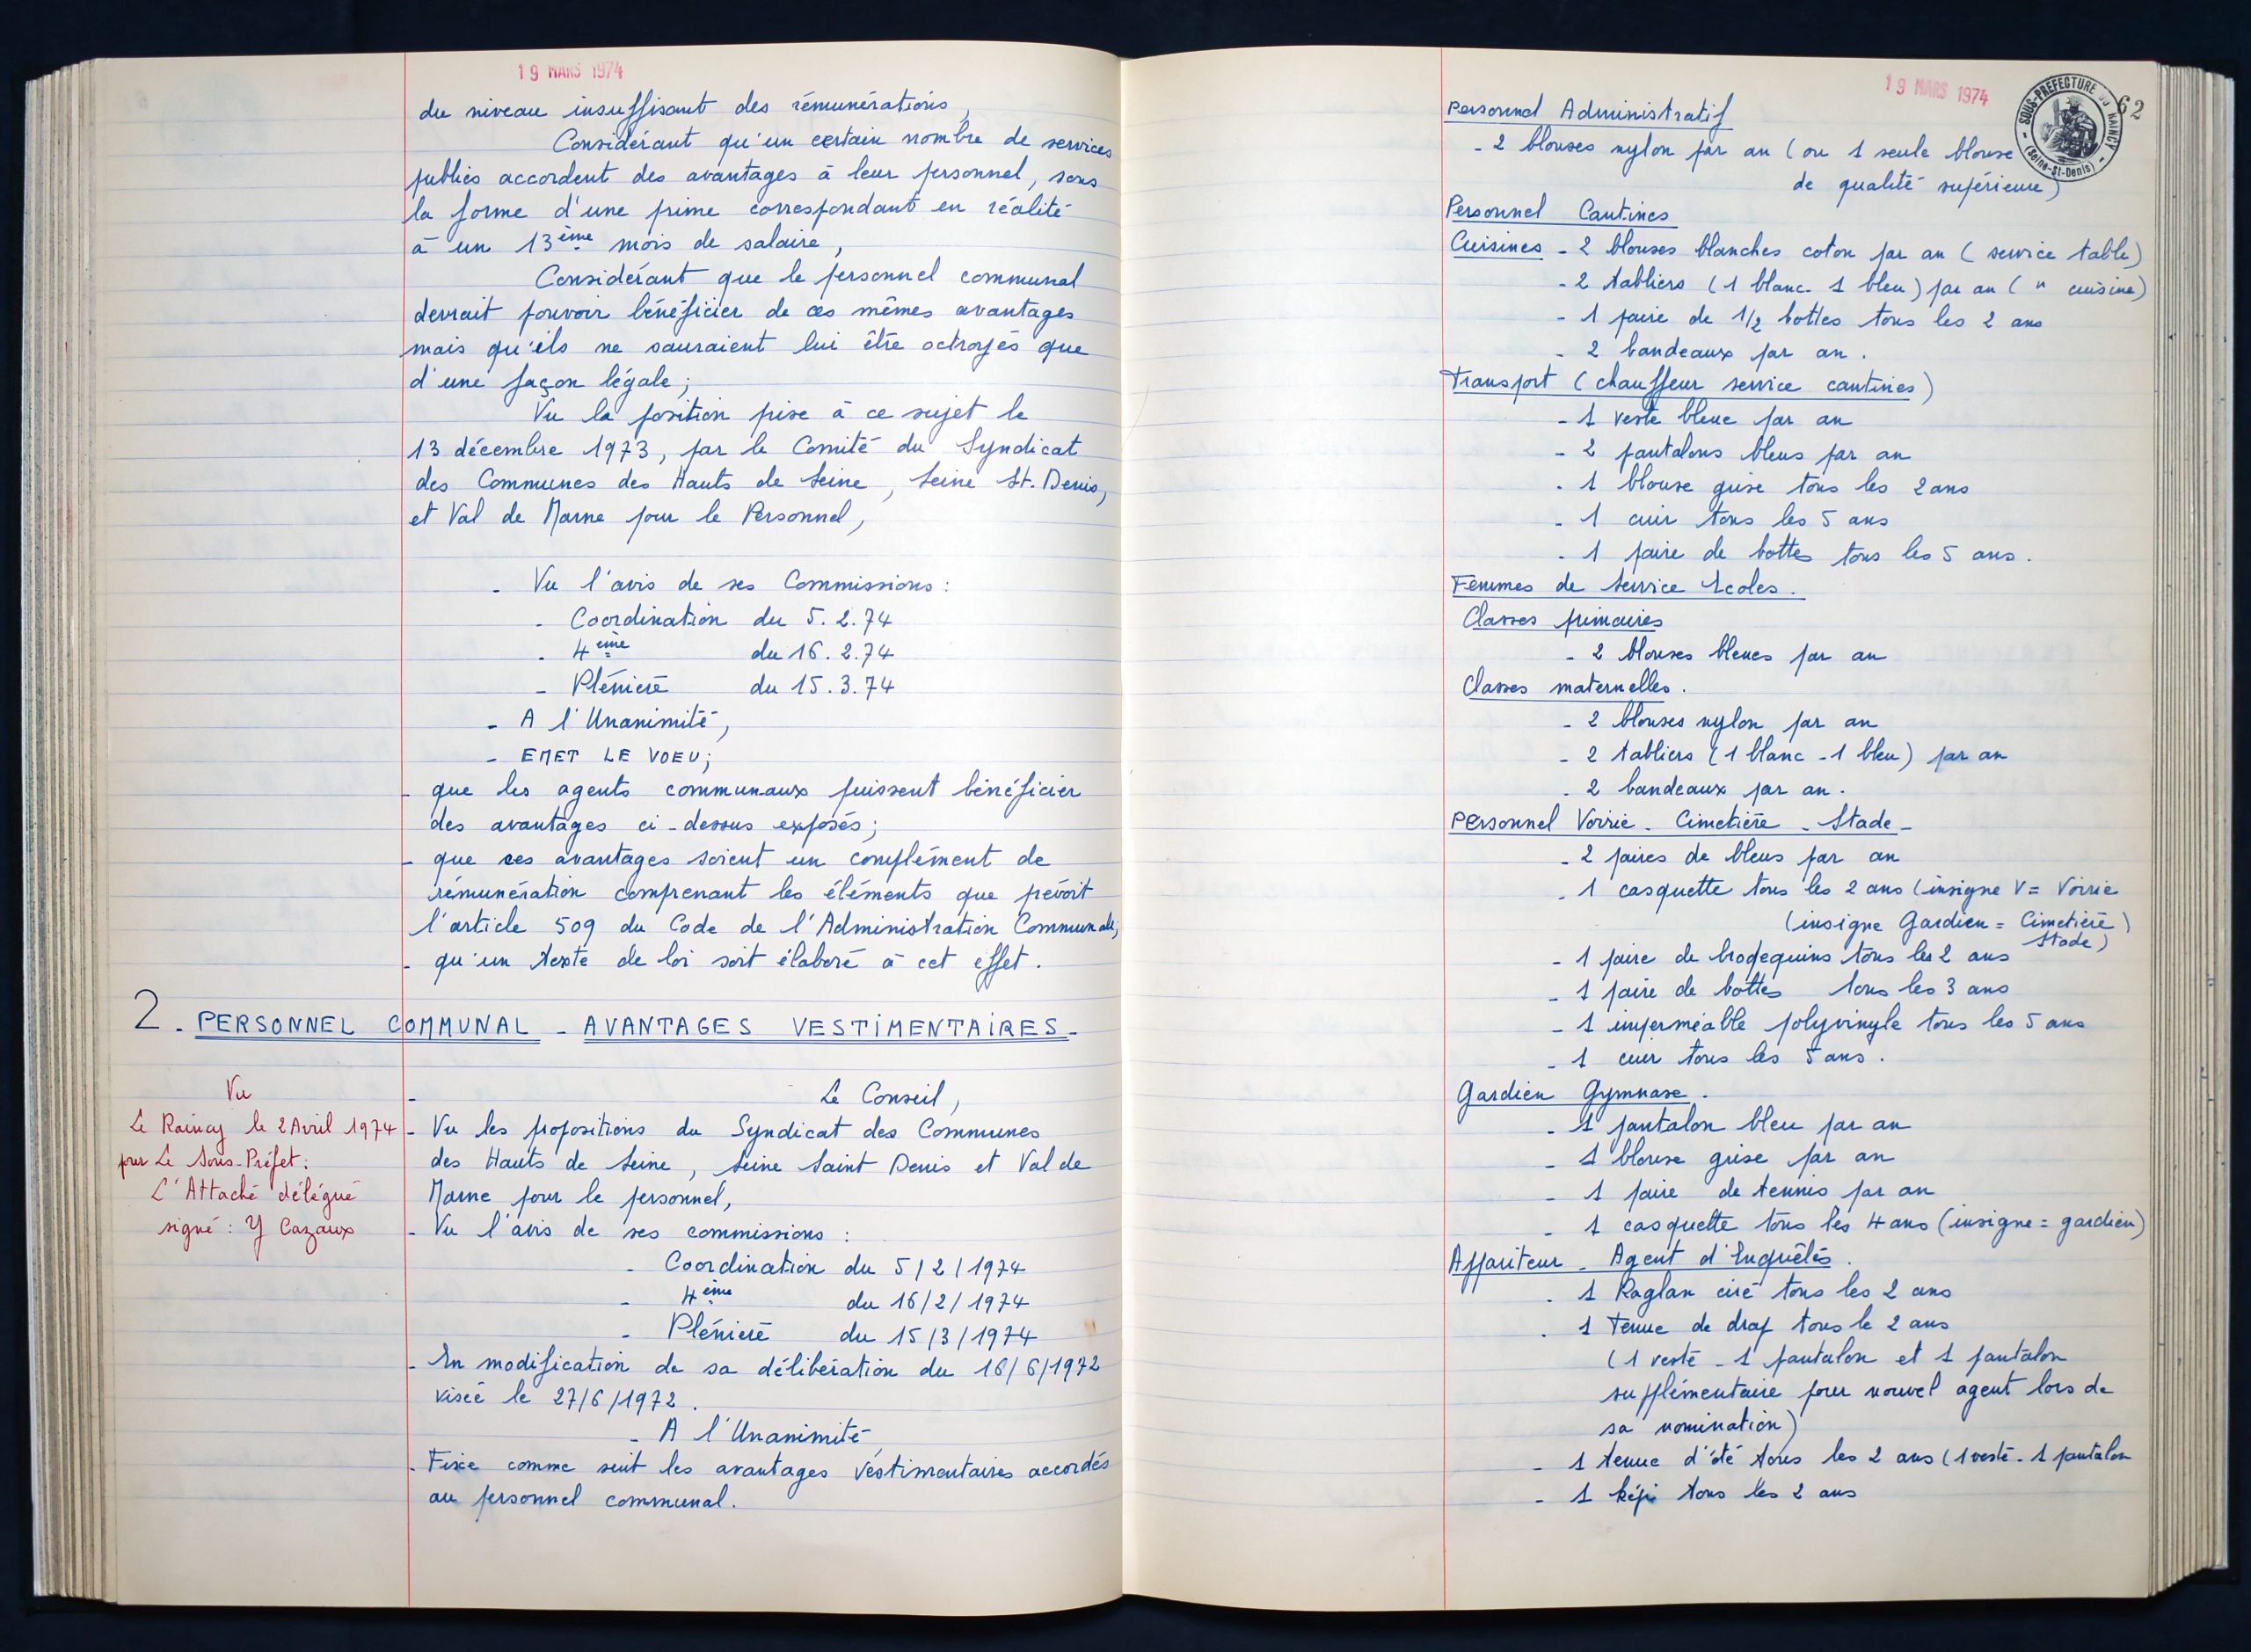 19 MARS 1974
du niveau insuffisant des rémunérations,
Considérant qu'un certain nombre de services
publics accordent des avantages à leur personnel, sous
la forme d'une prime correspondant en réalité
à un 13ème mois de salaire,
Considérant que le personnel communal
devrait pouvoir bénéficier de ces mêmes avantages
mais qu'ils ne sauraient lui être octroyés que
d'une façon légale;
Vu la position prise à ce sujet le
13 décembre 1973, par le Comité du Syndicat
des Communes des Hauts de Seine, Seine St. Denis,
et Val de Marne pour le Personnel,
- Vu l'avis de ses Commissions :
- Coordination du 5.2.74
- 4ème du 16.2.74
- Plénière du 15.3.74
- A l'Unanimité,
- EMET LE VOEU;
- que les agents communaux puissent bénéficier
des avantages ci-dessus exposés;
- que ces avantages soient un complément de
rémunération comprenant les éléments que prévoit
l'article 509 du Code de l'Administration Communale;
- qu'un texte de loi soit élaboré à cet effet.
2. PERSONNEL COMMUNAL - AVANTAGES VESTIMENTAIRES -
Vu
Le Raincy le 2 Avril 1974
pour Le Sous-Préfet :
L'Attaché délégué
signé : Y Cazaux
- Le Conseil,
- Vu les propositions du Syndicat des Communes
des Hauts de Seine, Seine Saint Denis et Val de
Marne pour le personnel,
- Vu l'avis de ses commissions :
- Coordination du 5/2/1974
- 4ème du 16/2/1974
- Plénière du 15/3/1974
- En modification de sa délibération du 16/6/1972
visée le 27/6/1972.
- A l'Unanimité
- Fixe comme suit les avantages vestimentaires accordés
au personnel communal.
19 MARS 1974
SOUS-PREFECTURE DU RAINCY
(Seine-St-Denis)
62
Personnel Administratif
- 2 blouses nylon par an (ou 1 seule blouse
de qualité supérieure)
Personnel Cantines
Cuisines - 2 blouses blanches coton par an (service table)
- 2 tabliers (1 blanc - 1 bleu) par an ( " cuisine)
- 1 paire de 1/2 bottes tous les 2 ans
- 2 bandeaux par an.
Transport (chauffeur service cantines)
- 1 veste bleue par an
- 2 pantalons bleus par an
- 1 blouse grise tous les 2 ans
- 1 cuir tous les 5 ans
- 1 paire de bottes tous les 5 ans.
Femmes de Service Ecoles.
Classes primaires
- 2 blouses bleues par an
Classes maternelles.
- 2 blouses nylon par an
- 2 tabliers (1 blanc - 1 bleu) par an
- 2 bandeaux par an.
Personnel Voirie - Cimetière - Stade -
- 2 paires de bleus par an
- 1 casquette tous les 2 ans (insigne V = Voirie
(insigne Gardien = Cimetière)
Stade)
- 1 paire de brodequins tous les 2 ans
- 1 paire de bottes tous les 3 ans
- 1 imperméable polyvinyle tous les 5 ans
- 1 cuir tous les 5 ans.
Gardien Gymnase.
- 1 pantalon bleu par an
- 1 blouse grise par an
- 1 paire de tennis par an
- 1 casquette tous les 4 ans (insigne = gardien)
Appariteur - Agent d'Enquêtes.
- 1 Raglan ciré tous les 2 ans
- 1 Tenue de drap tous le 2 ans
(1 veste - 1 pantalon et 1 pantalon
supplémentaire pour nouvel agent lors de
sa nomination)
- 1 tenue d'été tous les 2 ans (1 veste - 1 pantalon
- 1 képi tous les 2 ans